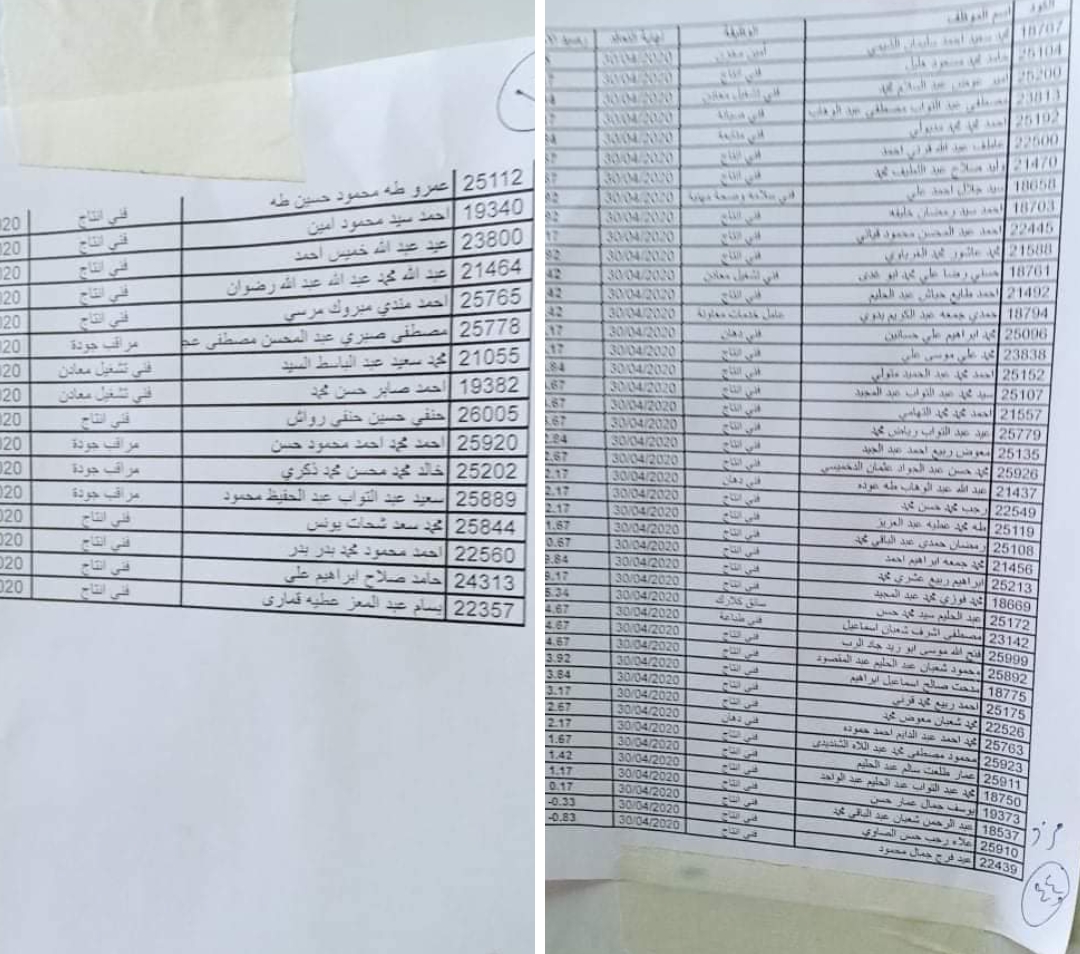 25112 عمرو طه محمود حسين طه فني انتاج 020
19340 احمد سيد محمود امين فني انتاج 020
23800 عيد عبد الله خميس احمد فني انتاج 020
21464 عبد الله محمد عبد الله عبد الله رضوان فني انتاج 020
25765 احمد مندي مبروك مرسي فني انتاج 020
25778 مصطفى صبري عبد المحسن مصطفى عج مراقب جودة 020
21055 محمد سعيد عبد الباسط السيد فني تشغيل معادن 020
19382 احمد صابر حسن محمد فني تشغيل معادن 020
26005 حنفي حسين حنفي رواش فني انتاج 020
25920 احمد محمد احمد محمود حسن مراقب جودة 020
25202 خالد محمد محسن محمد ذكري مراقب جودة 020
25889 سعيد عبد التواب عبد الحفيظ محمود مراقب جودة 020
25844 محمد سعد شحات يونس فني انتاج 020
22560 احمد محمود محمد بدر بدر فني انتاج 020
24313 حامد صلاح ابراهيم علي فني انتاج 020
22357 بسام عبد المعز عطيه قمارى فني انتاج 020
الكود اسم الموظف الوظيفة نهاية التعاقد
18707 محمد سعيد احمد سليمان 30/04/2020
25104 حامد محمد مسعود خليل فني انتاج 30/04/2020
25200 امير عوض عبد السلام محمد فني تشغيل معادن 30/04/2020
23813 مصطفى عبد التواب مصطفى عبد الوهاب فني صيانة 30/04/2020
25192 احمد محمد محمد مدبولي فني متابعة 30/04/2020
22500 عاطف عبد الله قرني احمد فني انتاج 30/04/2020
21470 وليد صلاح عبد اللطيف محمد فني انتاج 30/04/2020
18658 سيد جلال احمد علي فني سلامه وصحة مهنية 30/04/2020
18703 احمد سيد رمضان خليفه فني انتاج 30/04/2020
22445 احمد عبد المحسن محمود قياتي فني انتاج 30/04/2020
21588 محمد عاشور محمد الغرباوي فني انتاج 30/04/2020
18761 حسني رضا علي محمد ابو غدى فني تشغيل معادن 30/04/2020
21492 احمد طايع حباش عبد الحليم فني انتاج 30/04/2020
18794 حمدي جمعه عبد الكريم بدوي عامل خدمات معاونة 30/04/2020
25096 محمد ابراهيم علي حسانين فني دهان 30/04/2020 .17
23838 محمد علي موسى علي فني انتاج 30/04/2020 .17
25152 احمد محمد عبد الحميد متولي فني انتاج 30/04/2020 .84
25107 سيد محمد عبد التواب عبد المجيد فني انتاج 30/04/2020 .67
21557 احمد محمد محمد التهامي فني انتاج 30/04/2020 .67
25779 عيد عبد التواب رياض محمد فني انتاج 30/04/2020 .67
25135 معوض ربيع احمد عبد الجيد فني انتاج 30/04/2020 2.84
25926 محمد حسن عبد الجواد عثمان الدخميسي فني انتاج 30/04/2020 2.67
21437 عبد الله عبد الوهاب طه عوده فني دهان 30/04/2020 2.17
22549 رجب محمد حسن محمد فني انتاج 30/04/2020 2.17
25119 طه محمد عطيه عبد العزيز فني انتاج 30/04/2020 2.17
25108 رمضان حمدي عبد الباقي محمد فني انتاج 30/04/2020 1.67
21456 محمد جمعه ابراهيم احمد فني انتاج 30/04/2020 0.67
25213 ابراهيم ربيع عشري محمد فني انتاج 30/04/2020 9.84
18669 محمد فوزي محمد عبد المجيد سائق كلارك 30/04/2020
25172 عبد الحليم سيد محمد حسن فني طباعة 30/04/2020 5.34
23142 مصطفى اشرف شعبان اسماعيل فني انتاج 30/04/2020 4.67
25999 فتح الله موسى ابو زيد جاد الرب فني انتاج 30/04/2020 4.67
25892 محمود شعبان عبد الحليم عبد المقصود فني انتاج 30/04/2020 4.67
18775 مدحت صالح اسماعيل ابراهيم فني انتاج 30/04/2020 3.92
25175 احمد ربيع محمد قرني فني انتاج 30/04/2020 3.84
22526 محمد شعبان معوض محمد فني انتاج 30/04/2020 3.17
25763 محمد احمد عبد الدايم احمد حموده فني دهان 30/04/2020 2.67
25923 محمود مصطفى محمد عبد اللاه الشنديدى فني انتاج 30/04/2020 2.17
25911 عمار طلعت سالم عبد الحليم فني انتاج 30/04/2020 1.67
18750 محمد عبد التواب عبد الحليم عبد الواحد فني انتاج 30/04/2020 1.42
19373 يوسف جمال عمار حسن فني انتاج 30/04/2020 1.17
18537 عبد الرحمن شعبان عبد الباقي محمد فني انتاج 30/04/2020 0.17
25910 علاء رجب حسن الصاوي فني انتاج 30/04/2020 -0.33
22439 عيد فرج جمال محمود فني انتاج 30/04/2020 -0.83